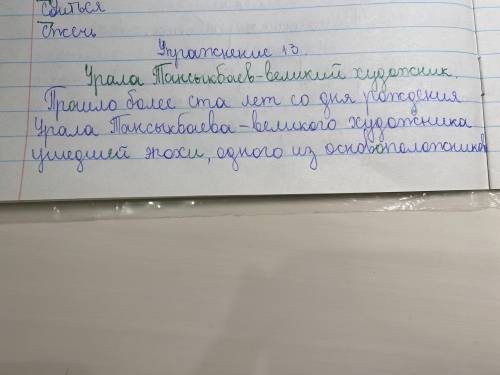 сбиться
сжечь
Упражнение 13.
Урала Тансыкбаев-великий художник.
Прошло более ста лет со дня рождения
Урала Тансыкбаева-великого художника
ушедшей эпохи, одного из основоположников